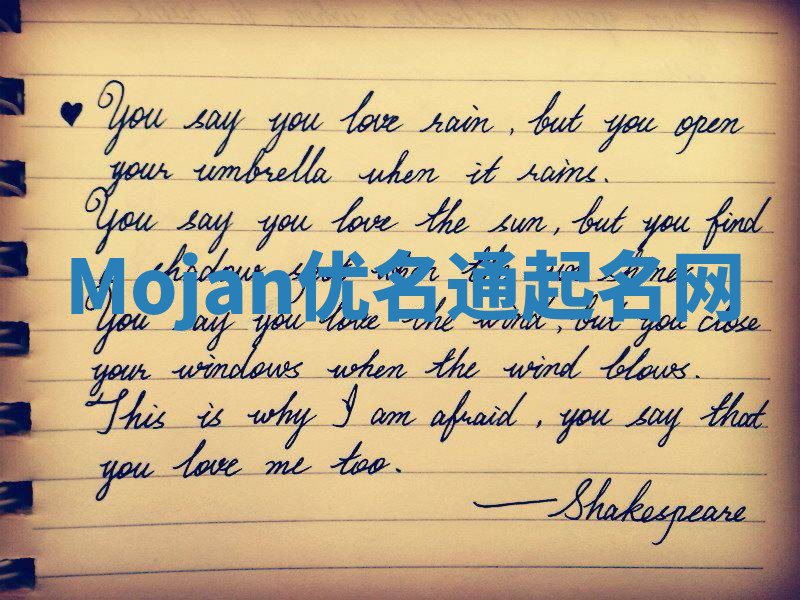 ♥ You say you love rain, but you open
your umbrella when it rains.
You say you love the sun, but you find
a shadow spot when the sun shines.
Mojan优名通起名网
You say you love the wind, but you close
your windows when the wind blows.
This is why I am afraid, you say that
you love me too.
—Shakespeare